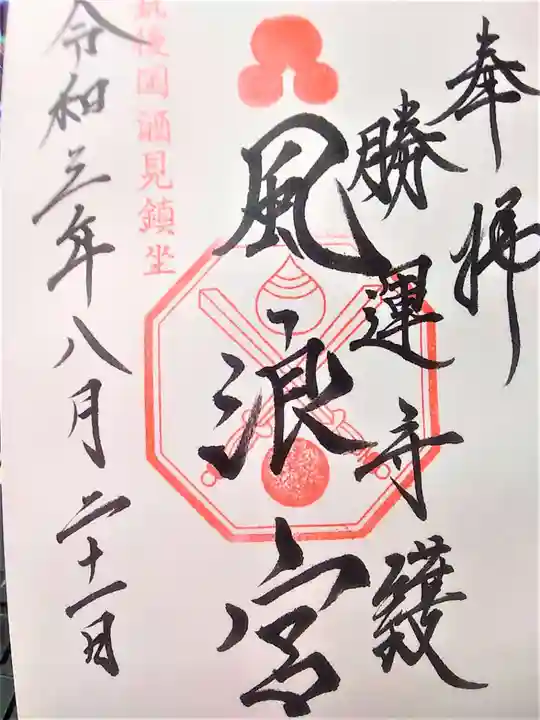 奉拝
勝運守護
風浪宮
筑後国酒見鎮坐
令和三年八月二十一日